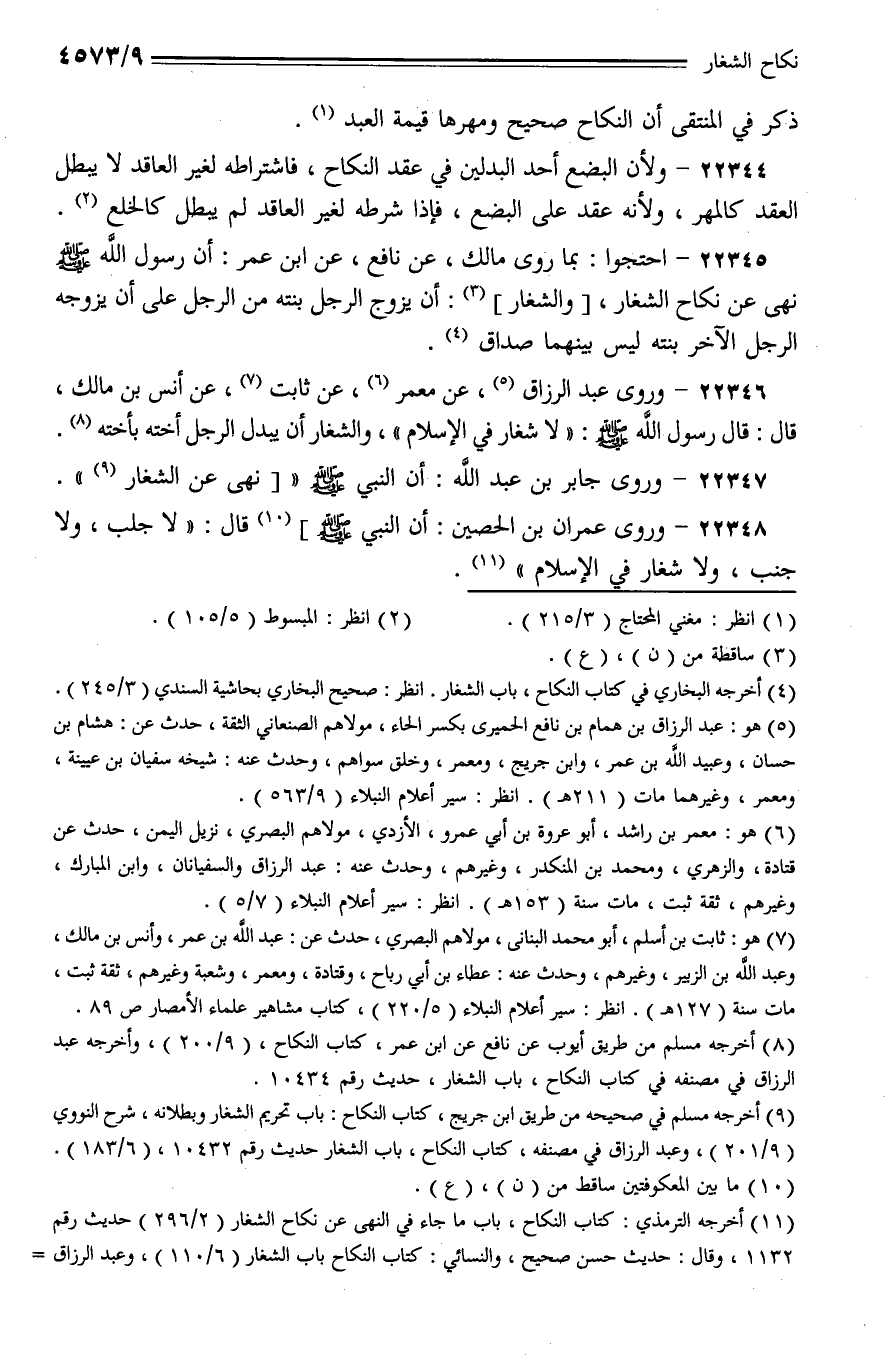 نكاح الشغار ٤٥٧٣/٩
ذكر في المنتقى أن النكاح صحيح ومهرها قيمة العبد (١) .
٢٢٣٤٤ - ولأن البضع أحد البدلين في عقد النكاح ، فاشتراطه لغير العاقد لا يبطل
العقد كالمهر ، ولأنه عقد على البضع ، فإذا شرطه لغير العاقد لم يبطل كالخلع (٢) .
٢٢٣٤٥ - احتجوا : بما روى مالك ، عن نافع ، عن ابن عمر : أن رسول اللَّه ﷺ
نهى عن نكاح الشغار ، [ والشغار ] (٣) : أن يزوج الرجل بنته من الرجل على أن يزوجه
الرجل الآخر بنته ليس بينهما صداق (٤) .
٢٢٣٤٦ - وروى عبد الرزاق (٥) ، عن معمر (٦) ، عن ثابت (٧) ، عن أنس بن مالك ،
قال : قال رسول اللَّه ﷺ : « لا شغار في الإسلام » ، والشغار أن يبدل الرجل أخته بأخته (٨) .
٢٢٣٤٧ - وروى جابر بن عبد اللَّه : أن النبي ﷺ « [ نهى عن الشغار (٩) » .
٢٢٣٤٨ - وروى عمران بن الحصين : أن النبي ﷺ ] (١٠) قال : « لا جلب ، ولا
جنب ، ولا شغار في الإسلام » (١١) .
(١) انظر : مغني المحتاج ( ٢١٥/٣ ) . (٢) انظر : المبسوط ( ١٠٥/٥ ) .
(٣) ساقطة من ( ن ) ، ( ع ) .
(٤) أخرجه البخاري في كتاب النكاح ، باب الشغار . انظر : صحيح البخاري بحاشية السندي ( ٢٤٥/٣ ) .
(٥) هو : عبد الرزاق بن همام بن نافع الحميرى بكسر الحاء ، مولاهم الصنعاني الثقة ، حدث عن : هشام بن
حسان ، وعبيد اللَّه بن عمر ، وابن جريج ، ومعمر ، وخلق سواهم ، وحدث عنه : شيخه سفيان بن عيينة ،
ومعمر ، وغيرهما مات ( ٢١١هـ ) . انظر : سير أعلام النبلاء ( ٥٦٣/٩ ) .
(٦) هو : معمر بن راشد ، أبو عروة بن أبي عمرو ، الأزدي ، مولاهم البصري ، نزيل اليمن ، حدث عن
قتادة ، والزهري ، ومحمد بن المنكدر ، وغيرهم ، وحدث عنه : عبد الرزاق والسفيانان ، وابن المبارك ،
وغيرهم ، ثقة ثبت ، مات سنة ( ١٥٣هـ ) . انظر : سير أعلام النبلاء ( ٥/٧ ) .
(٧) هو : ثابت بن أسلم ، أبو محمد البنانى ، مولاهم البصري ، حدث عن : عبد اللَّه بن عمر ، وأنس بن مالك ،
وعبد اللَّه بن الزبير ، وغيرهم ، وحدث عنه : عطاء بن أبي رباح ، وقتادة ، ومعمر ، وشعبة وغيرهم ، ثقة ثبت ،
مات سنة ( ١٢٧هـ ) . انظر : سير أعلام النبلاء ( ٢٢٠/٥ ) ، كتاب مشاهير علماء الأمصار ص ٨٩ .
(٨) أخرجه مسلم من طريق أيوب عن نافع عن ابن عمر ، كتاب النكاح ، ( ٢٠٠/٩ ) ، وأخرجه عبد
الرزاق في مصنفه في كتاب النكاح ، باب الشغار ، حديث رقم ١٠٤٣٤ .
(٩) أخرجه مسلم في صحيحه من طريق ابن جريج ، كتاب النكاح : باب تحريم الشغار وبطلانه ، شرح النووي
( ٢٠١/٩ ) ، وعبد الرزاق في مصنفه ، كتاب النكاح ، باب الشغار حديث رقم ١٠٤٣٢ ، ( ١٨٣/٦ ) .
(١٠) ما بين المعكوفتين ساقط من ( ن ) ، ( ع ) .
(١١) أخرجه الترمذي : كتاب النكاح ، باب ما جاء في النهى عن نكاح الشغار ( ٢٩٦/٢ ) حديث رقم
١١٣٢ ، وقال : حديث حسن صحيح ، والنسائي : كتاب النكاح باب الشغار ( ١١٠/٦ ) ، وعبد الرزاق =